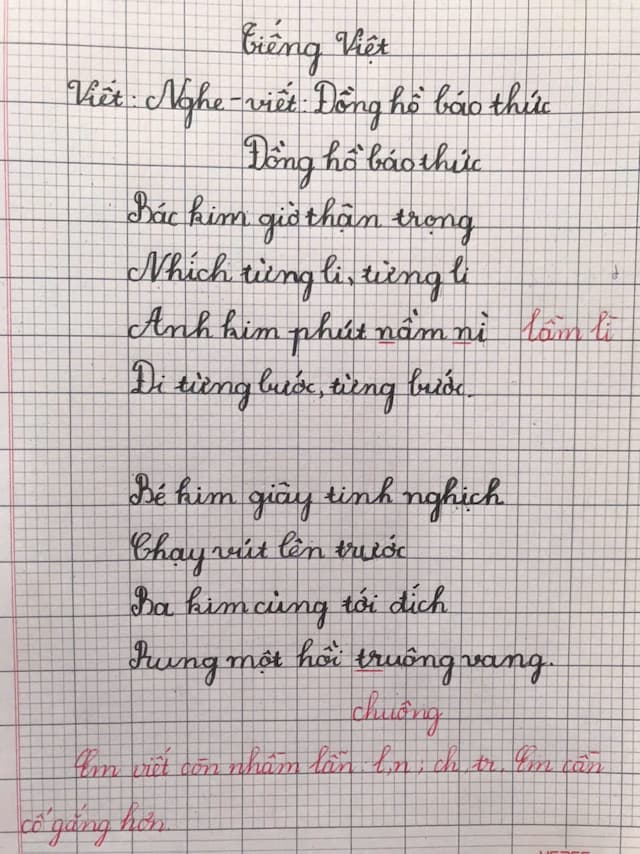 Tiếng Việt
Viết: Nghe-viết: Đồng hồ báo thức
Đồng hồ báo thức
Bác kim giờ thận trọng
Nhích từng li, từng li
Anh kim phút nầm nì lầm lì
Đi từng bước, từng bước.
Bé kim giây tinh nghịch
Chạy vút lên trước
Ba kim cùng tới đích
Rung một hồi truông vang.
chuông
Em viết còn nhầm lẫn l,n; ch, tr. Em cần
cố gắng hơn